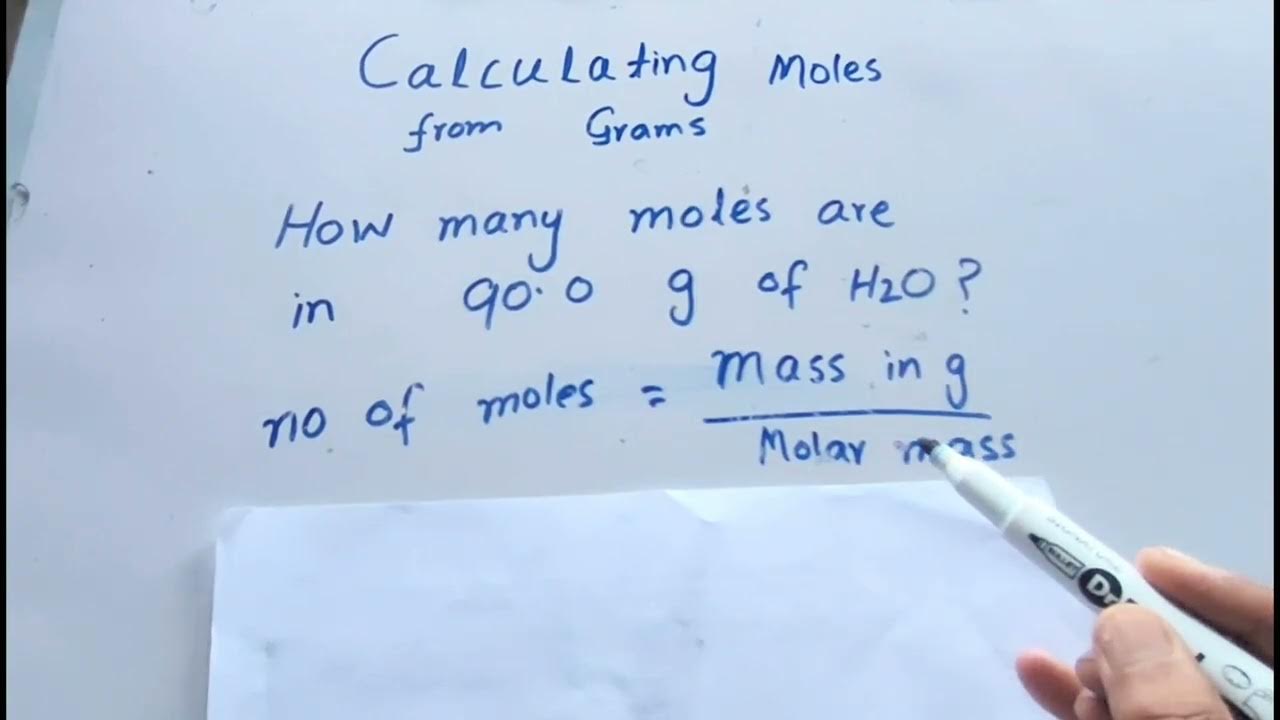 Calculating Moles
from Grams
How many moles are
in 90.0 g of H2O?
no of moles = mass in g
Molar mass